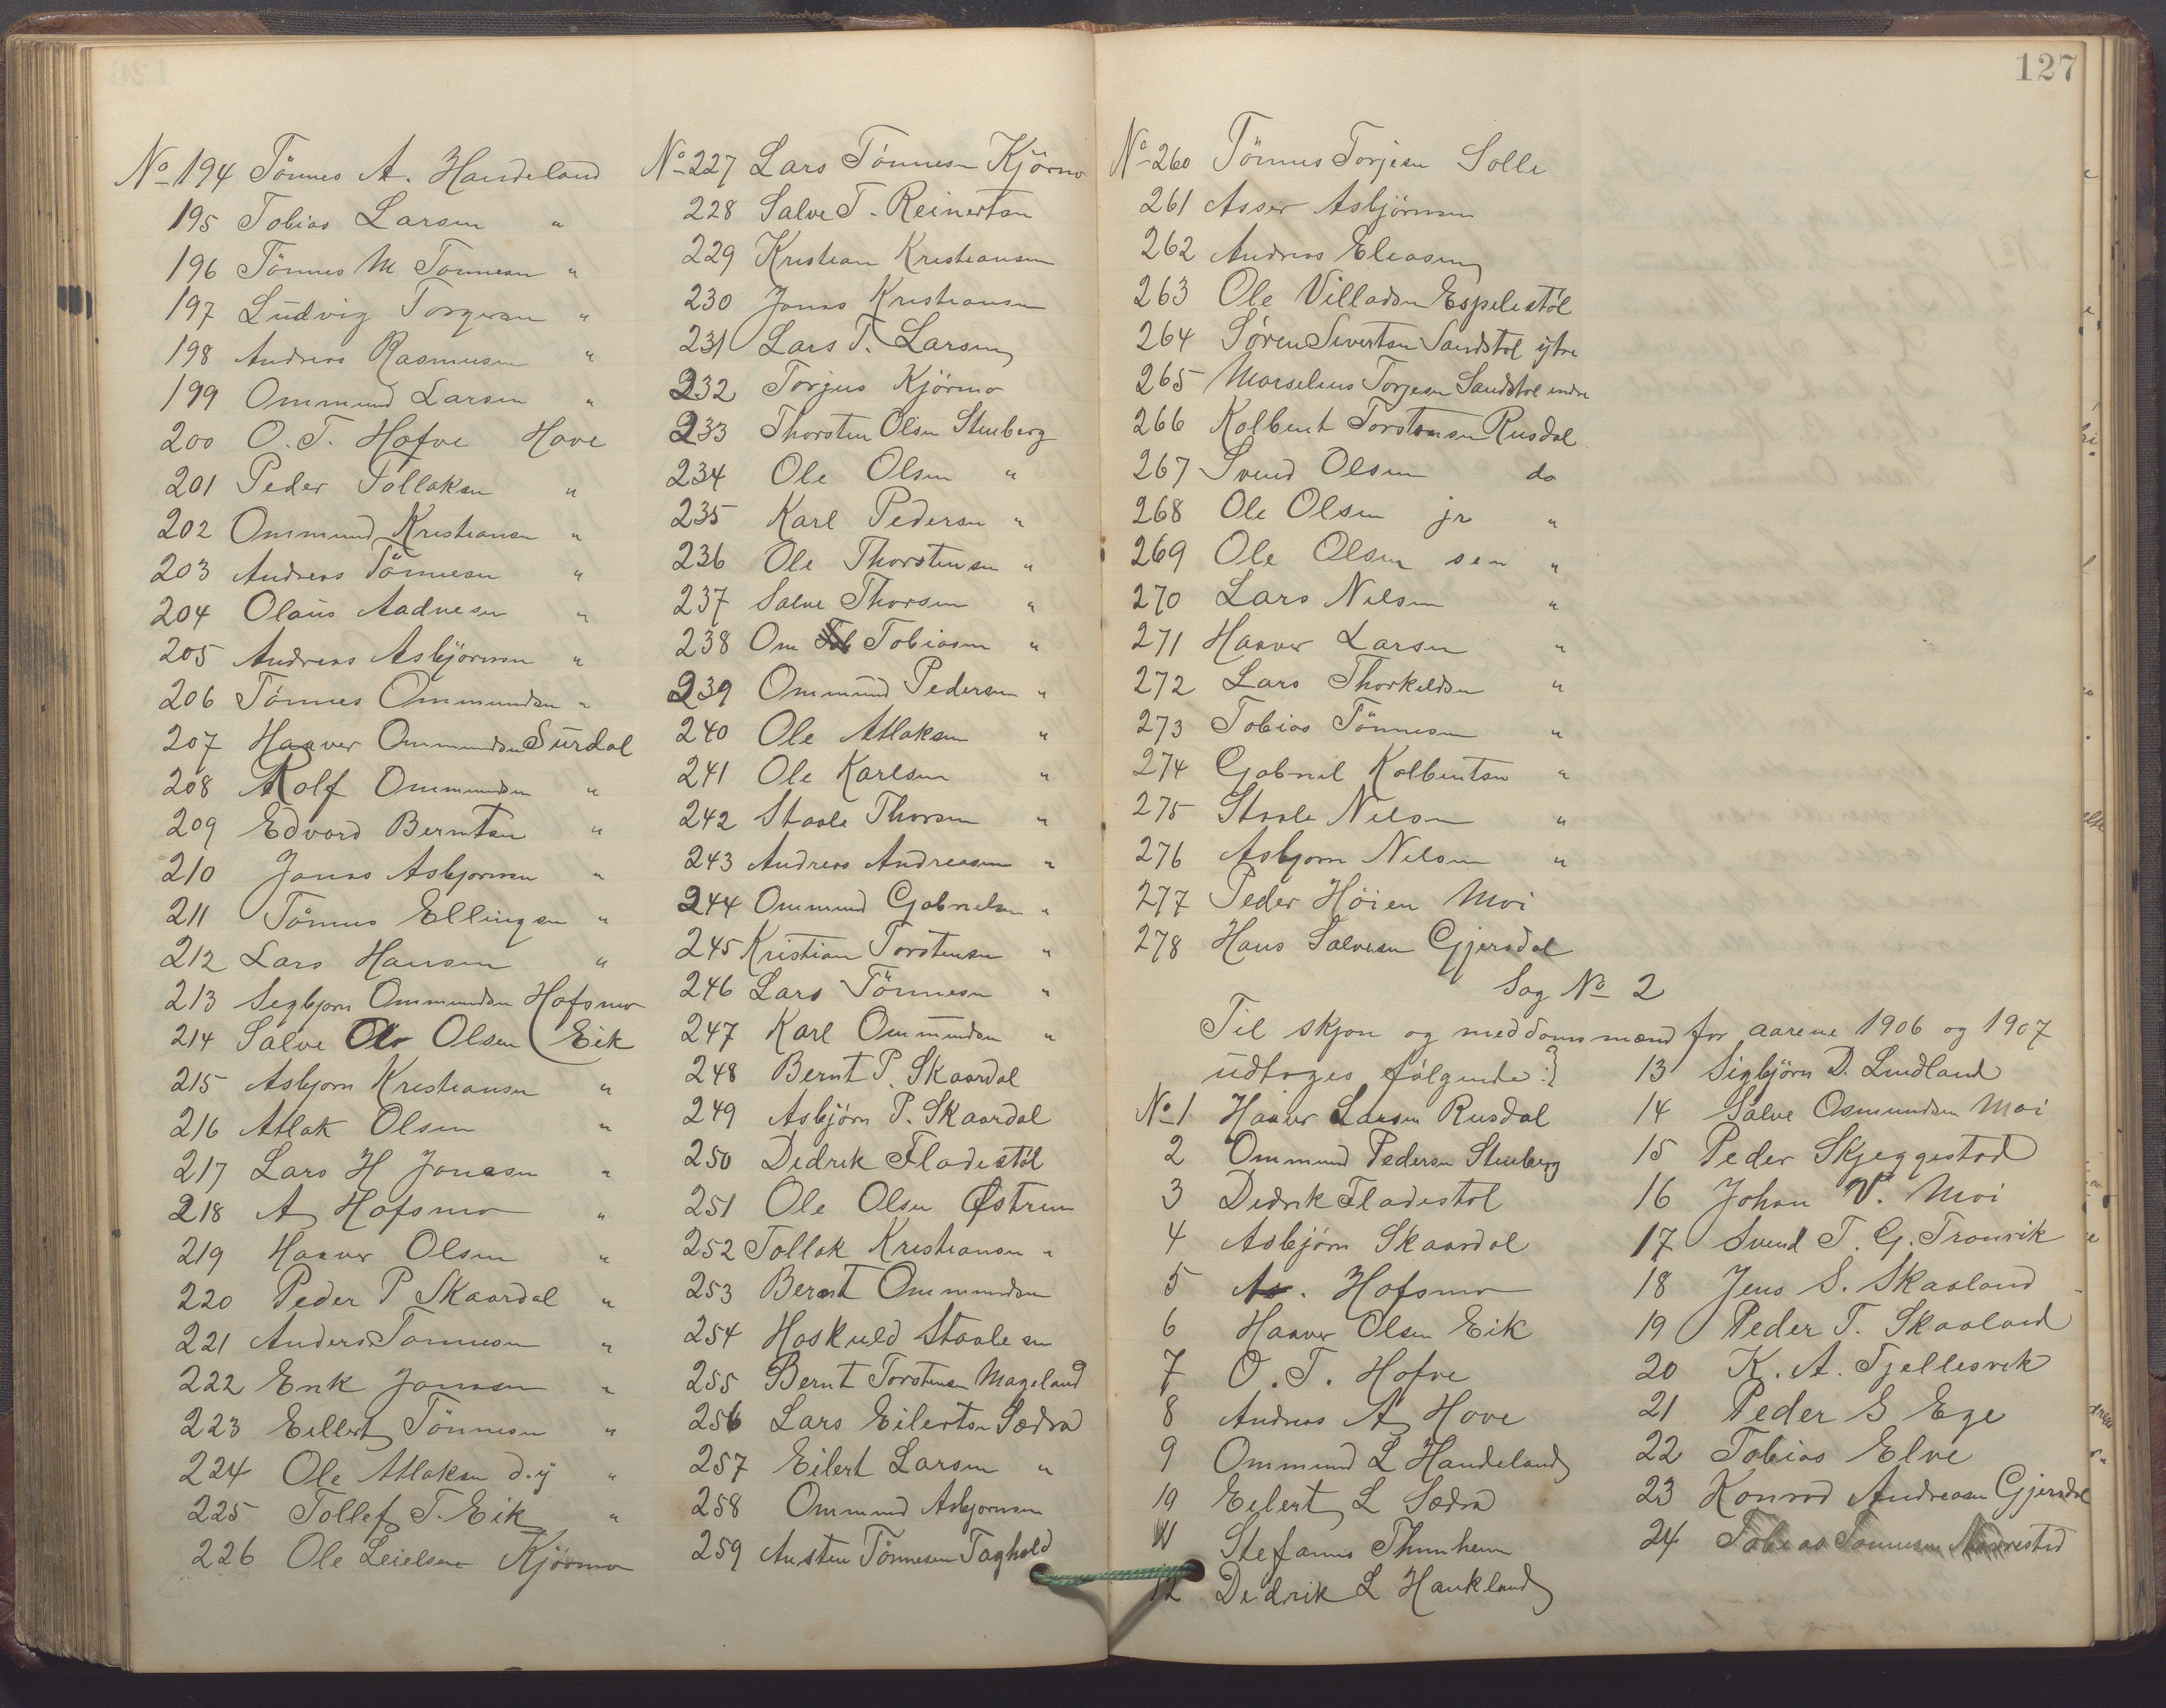 № 194 Tönnes A. Handeland
195 Tobias Larsen "
196 Tönnes M Tonnesen "
197 Ludvig Torgersen "
198 Andreas Rasmussen "
199 Ommund Larsen "
200 O. T. Hofve Hove
201 Peder Tollaksen "
202 Ommund Kristiansen "
203 Andreas Tönnesen "
204 Olaus Aadnesen "
205 Andreas Asbjörnsen "
206 Tönnes Ommundsen "
207 Haaver Ommundsen Surdal
208 Rolf Ommundsen "
209 Edvard Berntsen "
210 Jonas Asbjornsen "
211 Tönnes Ellingsen "
212 Lars Hansen "
213 Segbjorn Ommundsen Hofsmo
214 Salve Olsen Eik
215 Asbjorn Kristiansen "
216 Atlak Olsen "
217 Lars H Jonasen "
218 A Hofsmo "
219 Haaver Olsen "
220 Peder P Skaardal "
221 Anders Tonnesen "
222 Erik Jonasen "
223 Eillert Tönnesen "
224 Ole Atlaksen d.y "
225 Tollef T. Eik "
226 Ole Leielsen Kjörmo
№ 227 Lars Tönnesen Kjörmo
228 Salve T. Reinertsen
229 Kristian Kristiansen
230 Jonas Kristiansen
231 Lars T. Larsen
232 Torjus Kjörmo
233 Thorsten Olsen Stenberg
234 Ole Olsen "
235 Karl Pedersen "
236 Ole Thorstensen "
237 Salve Thorsen "
238 Om Tobiasen "
239 Ommund Pedersen "
240 Ole Atlaksen "
241 Ole Karlsen "
242 Staale Thorsen "
243 Andreas Andreasen "
244 Ommund Gabrielsen "
245 Kristian Torstensen "
246 Lars Tönnesen "
247 Karl Ommundsen "
248 Bernt P. Skaardal
249 Asbjörn P. Skaardal
250 Didrik Fladestöl
251 Ole Olsen Østrem
252 Tollak Kristiansen "
253 Bernt Ommundsen
254 Hoskuld Staalesen
255 Bernt Torstensen Mageland
256 Lars Eilertsen Sædra
257 Eilert Larsen "
258 Ommund Asbjornsen
259 Austen Tönnesen Taghold
127
№ 260 Tönnes Torjesen Solle
261 Asser Asbjörnsen
262 Andreas Eliasen
263 Ole Villadsen Espelestöl
264 Sören Sivertsen Sandstol ytre
265 Marselius Torjesen Sandstol indre
266 Kolbent Torstensen Rusdal
267 Svend Olsen do
268 Ole Olsen jr "
269 Ole Olsen sen "
270 Lars Nilsen "
271 Haaver Larsen "
272 Lars Thorkeldsen "
273 Tobias Tönnesen "
274 Gabriel Kolbentsen "
275 Staale Nilsen "
276 Asbjorn Nilsen "
277 Peder Höien Moi
278 Hans Salvesen Gjersdal
Sag № 2
Til skjon og meddomsmænd for aarene 1906 og 1907
udtoges fölgende:
№ 1 Haaver Larsen Rusdal
2 Ommund Pedersen Stenberg
3 Didrik Fladestol
4 Asbjörn Skaardal
5 A. Hofsmo
6 Haaver Olsen Eik
7 O. T. Hofve
8 Andreas A Hove
9 Ommund L Handeland
10 Eilert L Sædra
11 Stefanus Thunheim
12 Didrik L Haukland
13 Sigbjörn D. Lindland
14 Salve Osmundsen Moi
15 Peder Skjeggestad
16 Johan V. Moi
17 Svend T. G. Tronvik
18 Jens S. Skaaland
19 Peder T. Skaaland
20 K. A. Tjellesvik
21 Peder S Ege
22 Tobias Elve
23 Konrad Andreasen Gjersdal
24 Tobias Tonnesen Naavestad